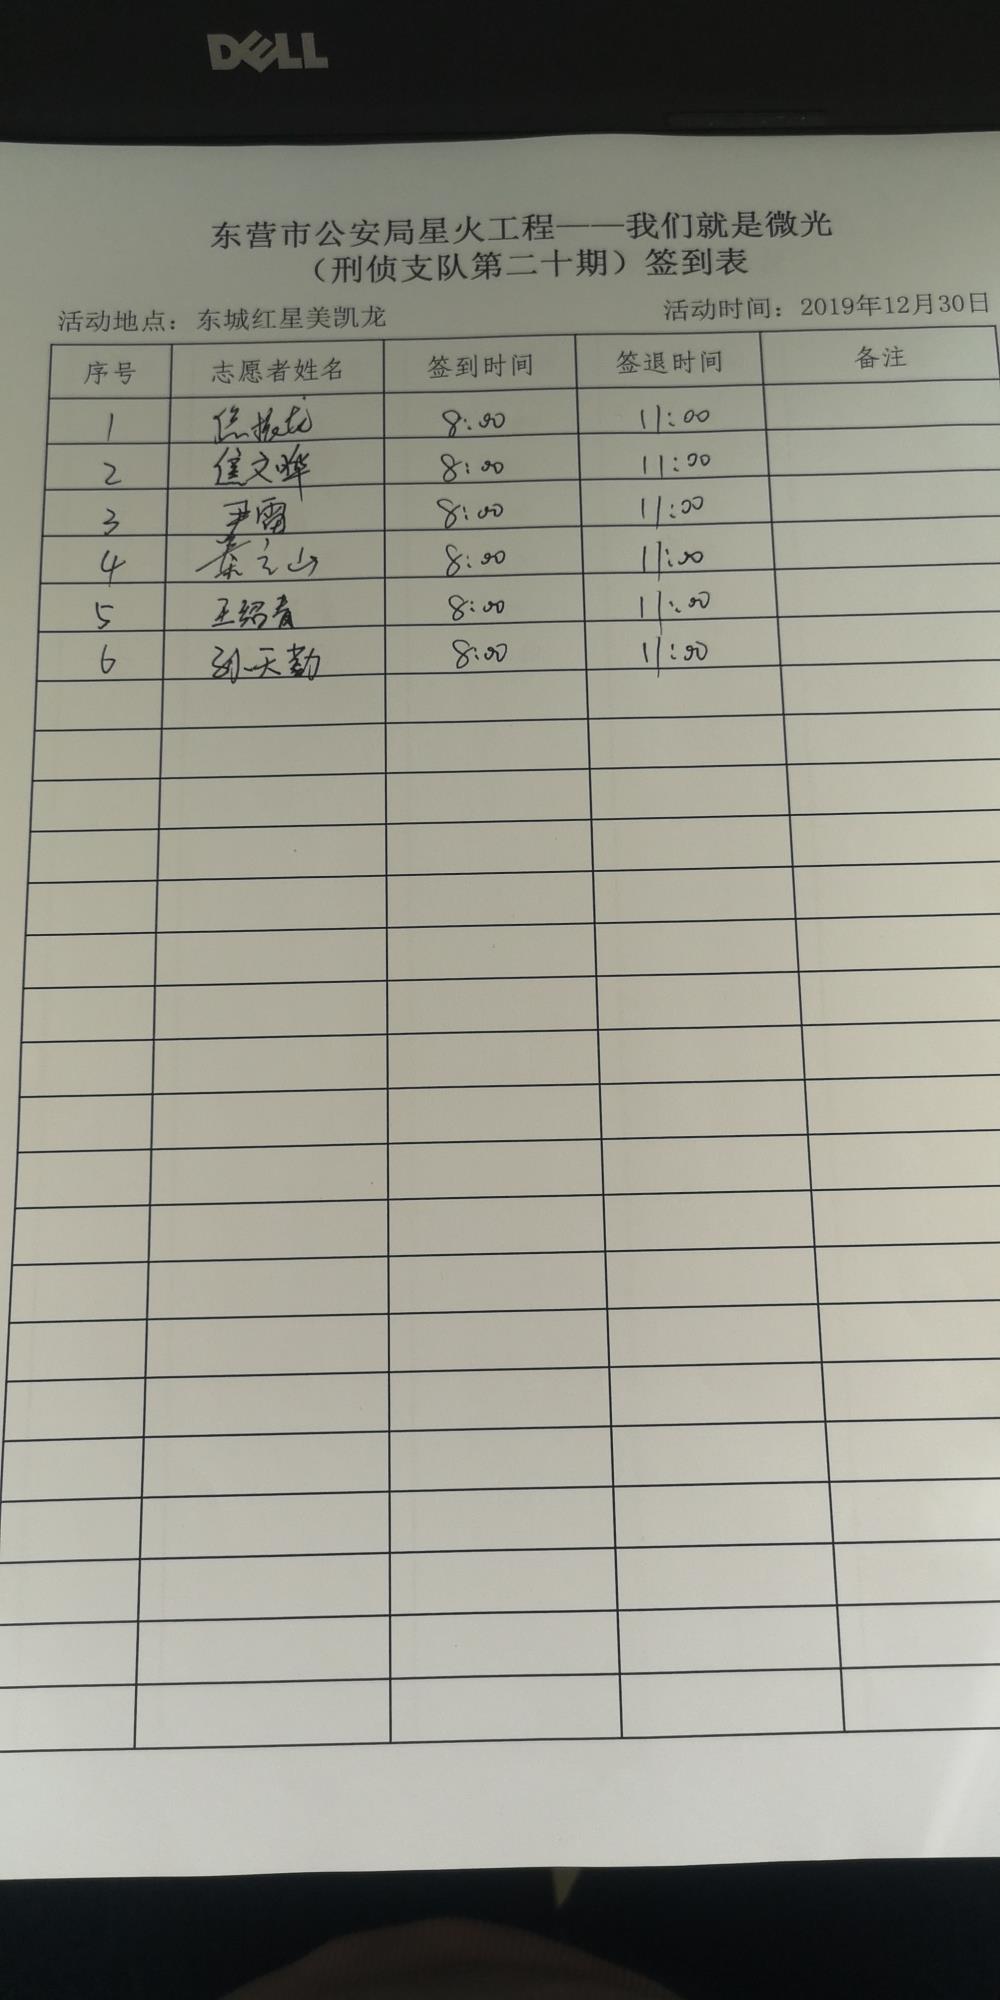 DELL
东营市公安局星火工程——我们就是微光
（刑侦支队第二十期）签到表
活动地点：东城红星美凯龙 活动时间：2019年12月30日
序号 志愿者姓名 签到时间 签退时间 备注
1 振龙 8:00 11:00
2 焦文晔 8:00 11:00
3 尹雷 8:00 11:00
4 山 8:00 11:00
5 王绍青 8:00 11:00
6 孙天勤 8:00 11:00